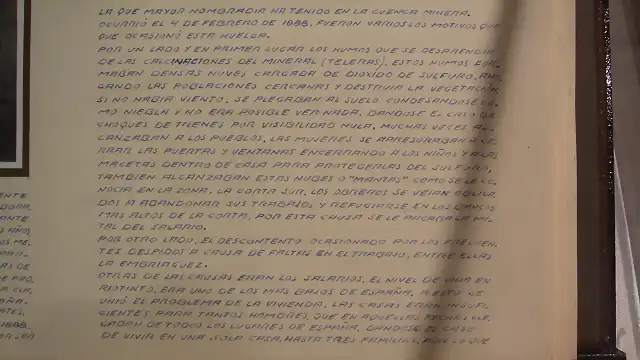 LA QUE MAYOR NOMBRADIA HA TENIDO EN LA CUENCA MINERA.
OCURRIÓ EL 4 DE FEBRERO DE 1888, FUERON VARIOS LOS MOTIVOS QUE
QUE OCASIONÓ ESTA HUELGA.
POR UN LADO Y EN PRIMER LUGAR LOS HUMOS QUE SE DESPRENDIA
DE LAS CALCINACIONES DEL MINERAL (TELERAS). ESTOS HUMOS FOR-
MABAN DENSAS NUVES CARGADA DE DIOXIDO DE SULFURO,
GANDO LAS POBLACIONES CERCANAS Y DESTRUIA LA VEGETACIÓN,
SI NO HABIA VIENTO, SE PLEGABAN AL SUELO CONDESANDOSE CO-
MO NIEBLA Y NO ERA POSIBLE VER NADA, DANDOSE EL CASO DE
CHOQUES DE TRENES POR VISIBILIDAD NULA, MUCHAS VECES AL-
CANZABAN A LOS PUEBLOS, LAS MUJERES SE APRESURABAN A CE-
RRAR LAS PUERTAS Y VENTANAS ENCERRANDO A LOS NIÑOS Y A LAS
MACETAS DENTRO DE CASA PARA PROTEGERLAS DEL SULFURO,
TAMBIEN ALCANZABAN ESTAS NUBES O "MANTAS" COMO SE LE CO-
NOCIA EN LA ZONA, LA CORTA SUR, LOS OBREROS SE VEIAN OBLIGA-
DOS A ABANDONAR SUS TRABAJOS Y REFUGIARSE EN LOS BANCOS
MAS ALTOS DE LA CORTA, POR ESTA CAUSA SE LE PAGABA LA MI-
TAL DEL SALARIO.
POR OTRO LADO, EL DESCONTENTO OCASIONADO POR LOS FRECUEN-
TES DESPIDOS A CAUSA DE FALTAS EN EL TRABAJO, ENTRE ELLAS
LA EMBRIAGUEZ.
OTRAS DE LAS CAUSAS ERAN LOS SALARIOS, EL NIVEL DE VIDA EN
RIOTINTO, ERA UNO DE LOS MAS BAJOS DE ESPAÑA, A ESTO SE
UNIÓ EL PROBLEMA DE LA VIVIENDA, LAS CASAS ERAN INSUFI-
CIENTES PARA TANTOS HOMBRES, QUE EN AQUELLAS FECHAS LLE-
GABAN DE TODOS LOS LUGARES DE ESPAÑA, DANDOSE EL CASO
DE VIVIR EN UNA SOLA CASA, HASTA TRES FAMILIAS, POR LO QUE